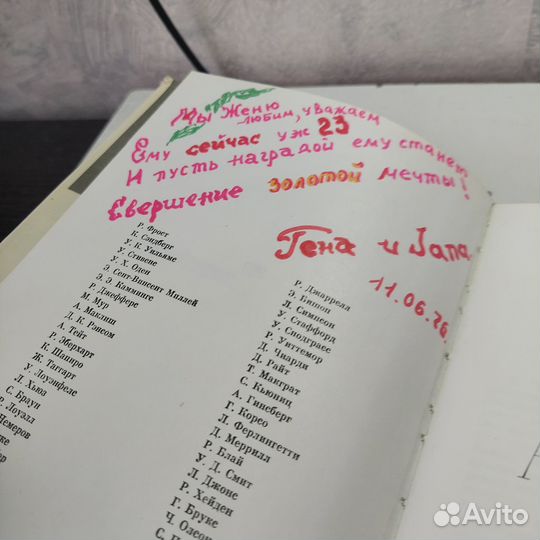 Мы Женю
любим, уважаем
Ему сейчас уж 23
И пусть наградой ему станет
Свершение золотой мечты!
Гена и
11.06.76.
Р. Фрост
К. Сэндберг
У. К. Уильямс
У. Стивенс
У. Х. Оден
Э. Сент-Винсент Миллей
Э. Э. Каммингс
Р. Джефферс
М. Мур
А. Маклиш
Д. К. Рэнсом
А. Тейт
Р. Эберхарт
К. Шапиро
Ж. Таггарт
У. Лоуэнфелс
Л. Хьюз
С. Браун
Р. Лоуэлл
Немеров
Р. Джаррелл
Э. Бишоп
Л. Симпсон
У. Стаффорд
У. Снодграсс
Р. Уиттемор
Д. Чиарди
Д. Райт
Т. Макграт
С. Кьюниц
А. Гинсберг
Г. Корсо
Л. Ферлингетти
Д. Меррилл
Р. Блай
У. Д. Смит
Л. Джонс
Р. Хейден
Г. Брукс
Ч. Олсон
Avito